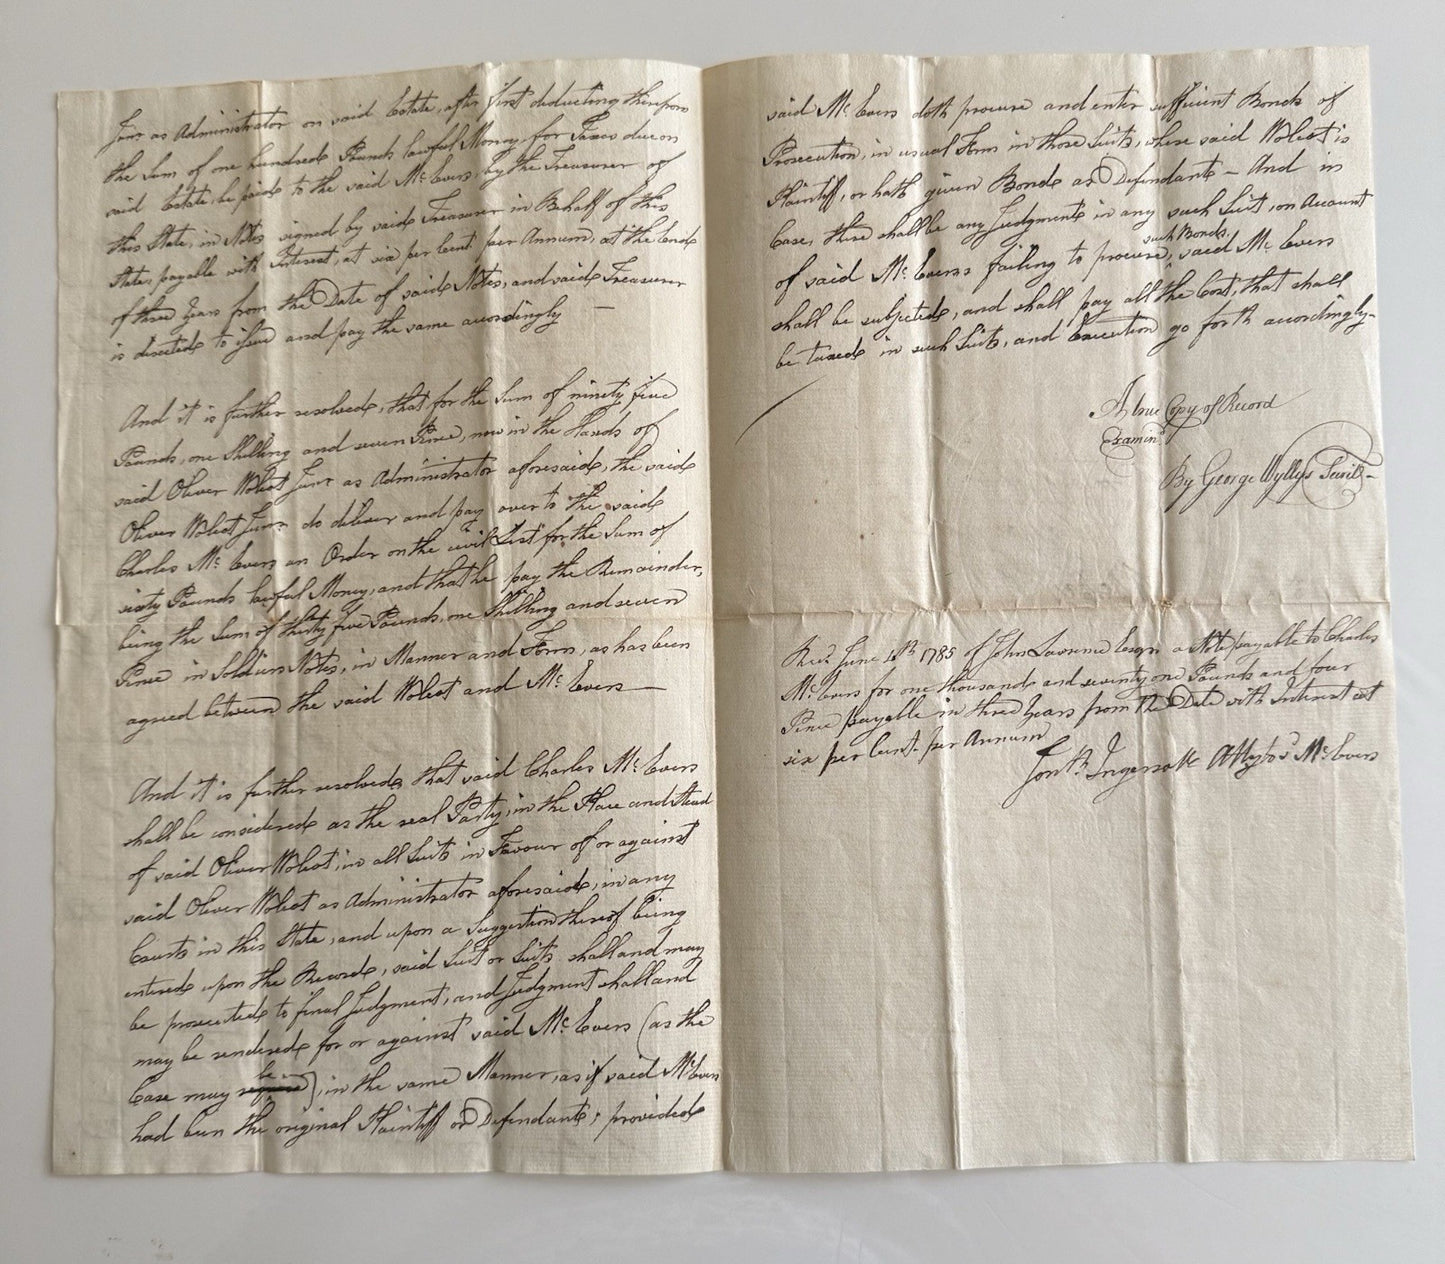 Junr as Administrator on said Estate, after first deducting therefrom
the Sum of one hundred Pounds lawful Money, for Taxes due on
said Estate, be paid to the said Mc. Evers, by the Treasurer of
this State, in Notes signed by said Treasurer in Behalf of this
State, payable with Interest, at six per Cent. per Annum, at the End
of three Years from the Date of said Notes, and said Treasurer
is directed to issue and pay the same accordingly —
And it is further resolved, that for the Sum of ninety five
Pounds, one Shilling and seven Pence, now in the Hands of
said Oliver Wolcot Junr as Administrator aforesaid, the said
Oliver Wolcot Junr. do deliver and pay over to the said
Charles Mc. Evers an Order on the civil List for the Sum of
sixty Pounds lawful Money, and that he pay the Remainder,
being the Sum of thirty five Pounds, one Shilling and seven
Pence in Soldiers Notes, in Manner and Form, as has been
agreed between the said Wolcot and Mc. Evers —
And it is further resolved, that said Charles Mc. Evers
shall be considered as the real Party, in the Place and Stead
of said Oliver Wolcot, in all Suits in Favour of or against
said Oliver Wolcot as Administrator aforesaid, in any
Courts in this State, and upon a Suggestion thereof being
entered upon the Record, said Suit or Suits shall and may
be prosecuted to final Judgment, and Judgment shall and
may be rendered for or against said Mc. Evers (as the
Case may be), in the same Manner, as if said Mc. Evers
had been the original Plaintiff or Defendant; provided
said Mc. Evers doth procure and enter sufficient Bonds of
Prosecution, in usual Form in those Suits, where said Wolcot is
Plaintiff, or hath given Bond as Defendant — And in
Case, there shall be any Judgment in any such Suit, on Account
of said Mc. Evers's failing to procure such Bonds, said Mc Evers
shall be subjected, and shall pay all the Cost, that shall
be taxed in such Suits, and Execution go forth accordingly-
A true Copy of Record
Examind
By George Wyllys Secrety
Recd. June 4th 1785 of John Lawrence Esqr a Note payable to Charles
Mc. Evers for one thousand and seventy one Pounds and four
Pence payable in three Years from the Date with Interest at
six per Cent. per Annum
Jonth Ingersoll Atty to sd Mc. Evers